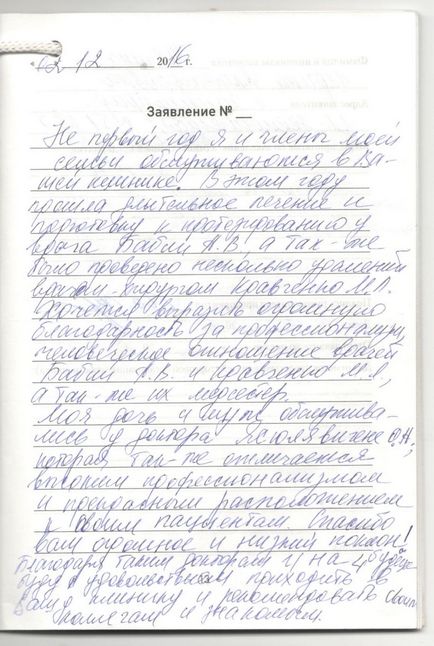 02 12 2016 г.
Заявление №
Не первый год я и члены моей
семьи обслуживаются в Ва-
шей клинике. В этом году
прошла длительное лечение и
подготовку к протезированию у
врача Бабий А.В. а так-же
было проведено несколько удалений
врачом-хирургом Кравченко М.Л.
Хочется выразить огромную
благодарность за профессионализм,
человеческое отношение врачей
Бабий А.В. и Кравченко М.Л.,
а так-же их медсестер.
Моя дочь и муж обслужива-
лись у доктора О.Н.,
которая так-же отличается
высоким профессионализмом
и прекрасным расположением
к своим пациентам. Спасибо
вам огромное и низкий поклон!
Благодаря таким докторам и на будущее
буду с удовольствием приходить в
Вашу клинику и рекомендовать своим
коллегам и знакомым.